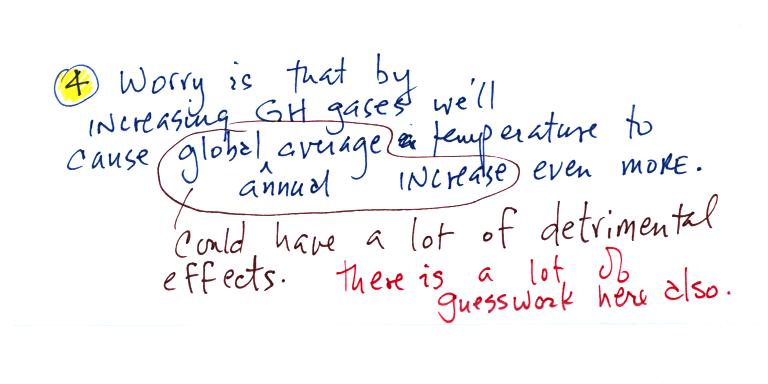 4 Worry is that by
increasing GH gases we'll
cause global average temperature to
annual increase even more.
could have a lot of detrimental
effects. there is a lot of
guesswork here also.